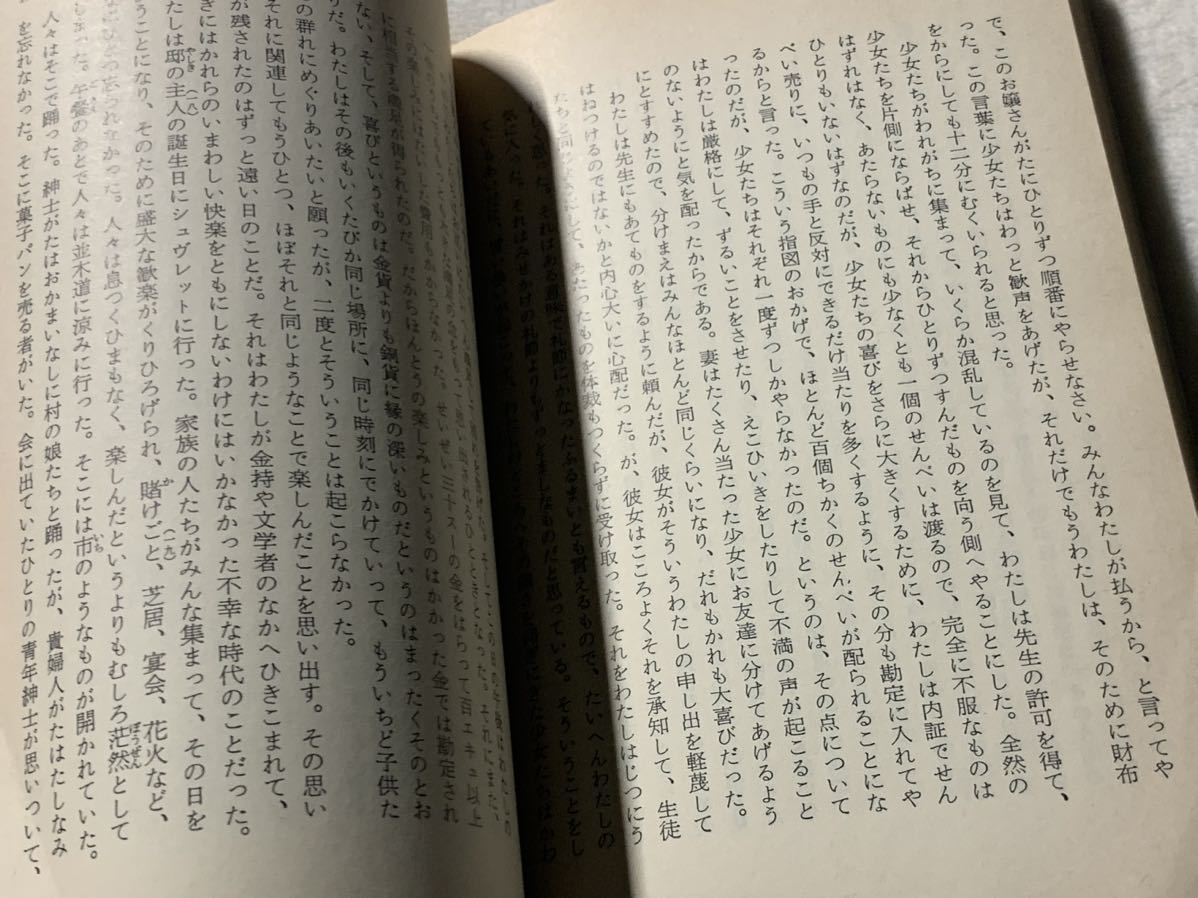 で、このお嬢さんがたにひとりずつ順番にやらせなさい。みんなわたしが払うから、と言ってや
った。この言葉に少女たちはわっと歓声をあげたが、それだけでもうわたしは、そのために財布
をからにしても十二分にむくいられると思った。
少女たちがわれがちに集まって、いくらか混乱しているのを見て、わたしは先生の許可を得て、
少女たちを片側にならばせ、それからひとりずつすんだものを向う側へやることにした。全然の
はずれはなく、あたらないものにも少なくとも一個のせんべいは渡るので、完全に不服なものは
ひとりもいないはずなのだが、少女たちの喜びをさらに大きくするために、わたしは内証でせん
べい売りに、いつもの手と反対にできるだけ当たりを多くするように、その分も勘定に入れてや
るからと言った。こういう指図のおかげで、ほとんど百個ちかくのせんべいが配られることにな
ったのだが、少女たちはそれぞれ一度ずつしかやらなかったのだ。というのは、その点について
はわたしは厳格にして、ずるいことをさせたり、えこひいきをしたりして不満の声が起こること
のないようにと気を配ったからである。妻はたくさん当たった少女にお友達に分けてあげるよう
にとすすめたので、分けまえはみんなほとんど同じくらいになり、だれもかれも大喜びだった。
わたしは先生にもあてものをするように頼んだが、彼女がそういうわたしの申し出を軽蔑して
はねつけるのではないかと内心大いに心配だった。が、彼女はこころよくそれを承知して、生徒
たちと同じようにして、あたったものを体裁もつくらずに受け取った。それをわたしはじつにう
れしく思った。それはある意味で礼節にかなったふるまいとも言えるもので、たいへんわたしの
気に入った。それはみせかけの礼節よりもずっとましなものだと思っている。そういうことをし
その楽しみにはたいした費用もかからなかった。せいぜい三十スーの金をはらって百エキュ以上
に相当する満足が得られたのだ。だからほんとうの楽しみというものはかかった金では勘定され
ない、そして、喜びというものは金貨よりも銅貨に縁の深いものだというのはまったくそのとお
りだ。わたしはその後もいくたびか同じ場所に、同じ時刻にでかけていって、もういちど子供た
の群れにめぐりあいたいと願ったが、二度とそういうことは起こらなかった。
それに関連してもうひとつ、ほぼそれと同じようなことで楽しんだことを思い出す。その思い
が残されたのはずっと遠い日のことだ。それはわたしが金持や文学者のなかへひきこまれて、
きにはかれらのいまわしい快楽をともにしないわけにはいかなかった不幸な時代のことだった。
たしは邸の主人の誕生日にシュヴレット(一八)に行った。家族の人たちがみんな集まって、その日を
うことになり、そのために盛大な歓楽がくりひろげられ、賭けごと(一九)、芝居、宴会、花火など、
ひとつ忘れられなかった。人々は息つくひまもなく、楽しんだというよりもむしろ茫然として
った。午餐のあとで人々は並木道に涼みに行った。そこには市のようなものが開かれていた。
人々はそこで踊った。紳士がたはおかまいなしに村の娘たちと踊ったが、貴婦人がたはたしなみ
を忘れなかった。そこに菓子パンを売る者がいた。会に出ていたひとりの青年紳士が思いついて、